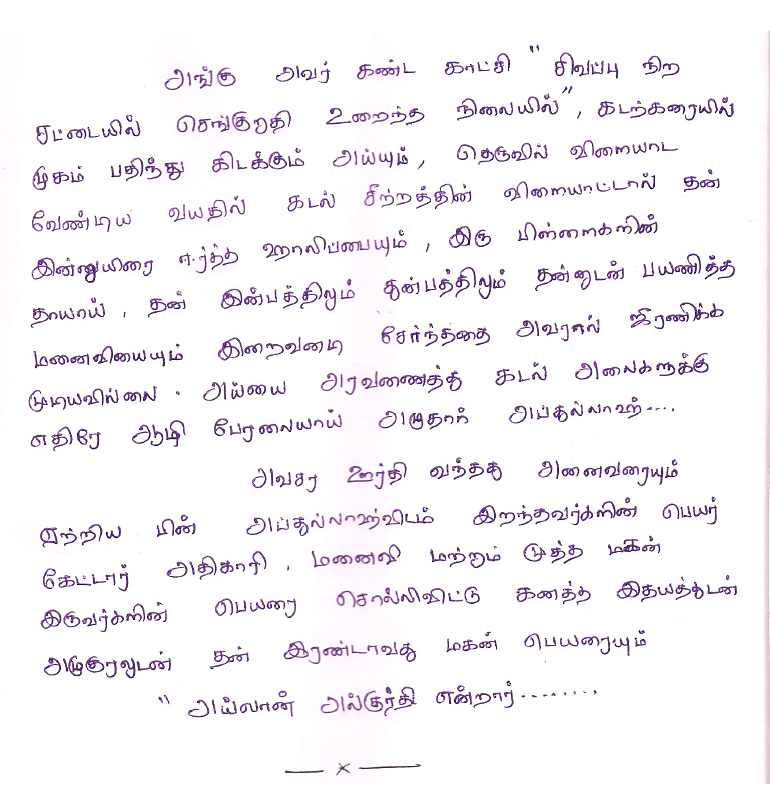 அங்கு அவர் கண்ட காட்சி "சிவப்பு நிற
சட்டையில் செங்குறுதி உறைந்த நிலையில்", கடற்கரையில்
முகம் பதிந்து கிடக்கும் அய்யும், தெருவில் விளையாட
வேண்டிய வயதில் கடல் சீற்றத்தின் விளையாட்டால் தன்
இன்னுயிரை ஈர்த்த ஹாலிப்பையும், இரு பிள்ளைகளின்
தாயாய், தன் இன்பத்திலும் துன்பத்திலும் தன்னுடன் பயணித்த
மனைவியையும் இறைவனடி சேர்ந்ததை அவரால் ஜீரணிக்க
முடியவில்லை. அய்யை அரவணைத்து கடல் அலைகளுக்கு
எதிரே ஆழி பேரலையாய் அழுதார் அப்துல்லாஹ்....
அவசர ஊர்தி வந்தது அனைவரையும்
ஏற்றிய பின் அப்துல்லாஹ்விடம் இறந்தவர்களின் பெயர்
கேட்டார் அதிகாரி, மனைவி மற்றும் மூத்த மகன்
இருவர்களின் பெயரை சொல்லிவிட்டு கனத்த இதயத்துடன்
அழுகுரலுடன் தன் இரண்டாவது மகன் பெயரையும்
"அய்லான் அல்குர்தி என்றார்........
— x —